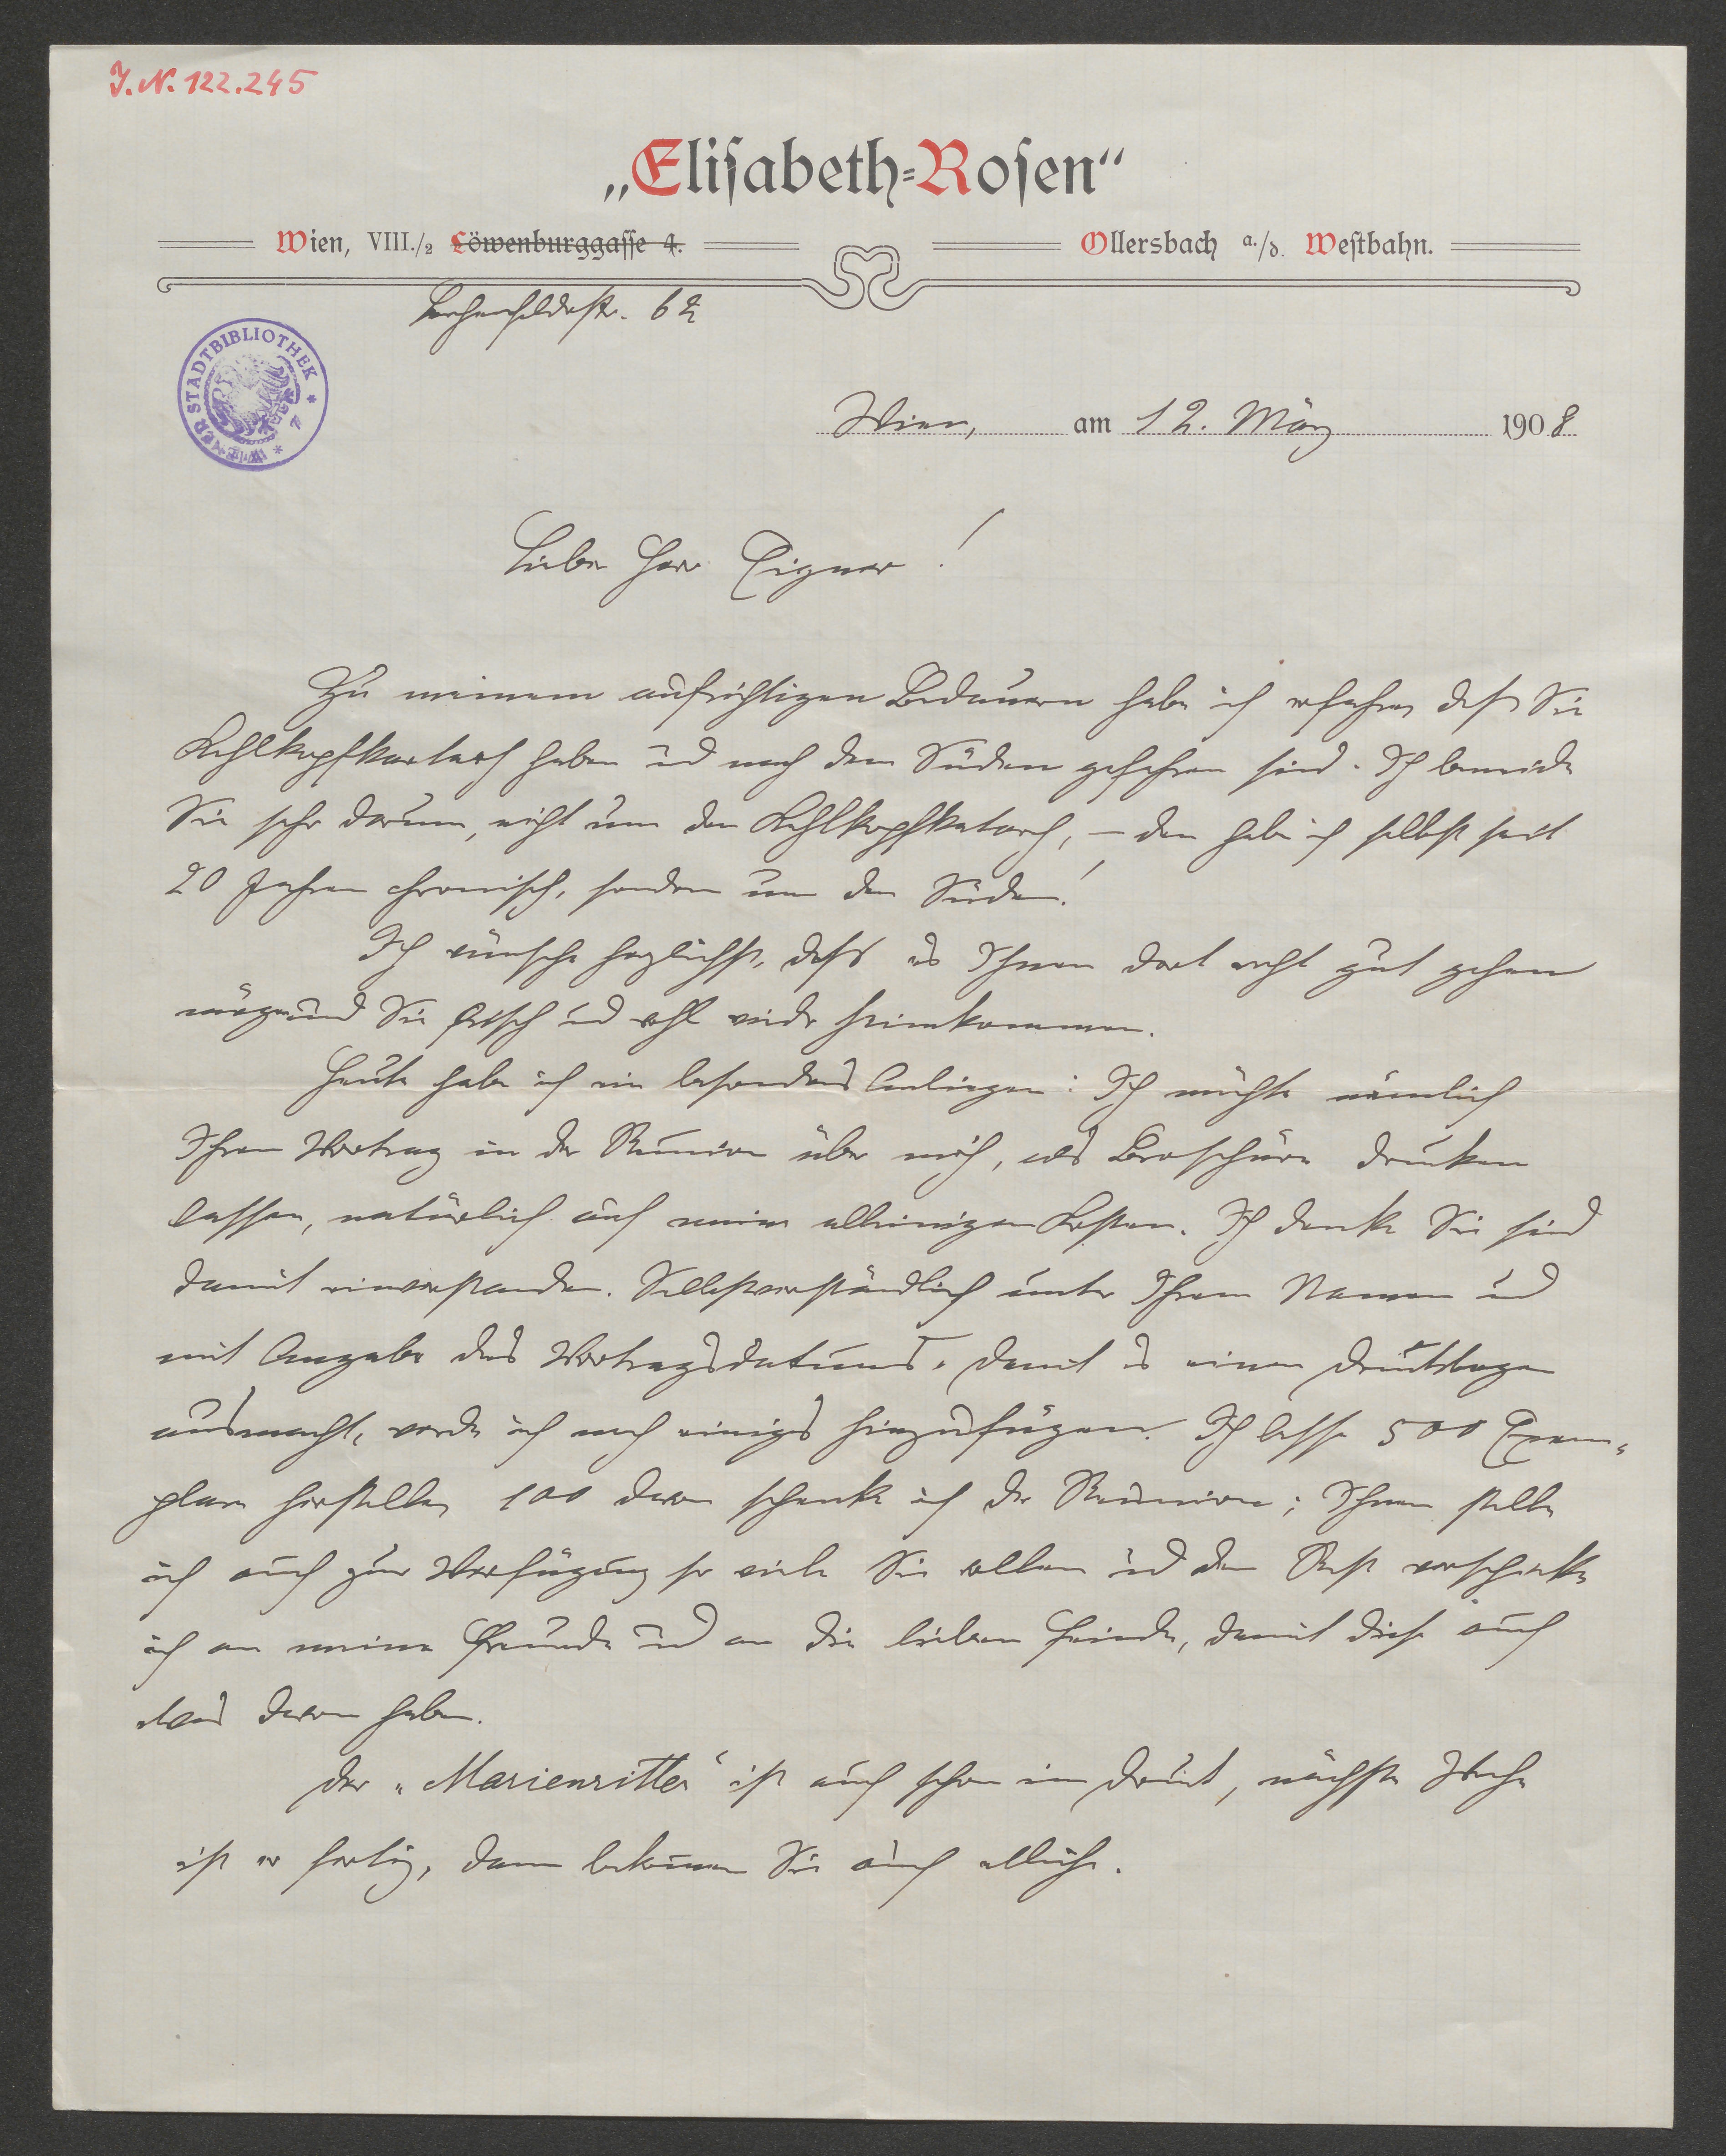 J.N. 122.245
„Elisabeth-Rosen“
Wien, VIII./2 Löwenburggasse 4.
Ollersbach a./d. Westbahn.
Lerchenfelderstr. 62
WIENER STADTBIBLIOTHEK
Wien, am 12. März 1908
Lieber Herr Eigner!
Zu meinem aufrichtigen Bedauern habe ich erfahren daß Sie
Kehlkopfkatarh haben und nach dem Süden gefahren sind. Ich beneide
Sie sehr darum, nicht um den Kehlkopfkatarh, – den habe ich selbst seit
20 Jahren chronisch, sondern um den Süden!
Ich wünsche herzlichst, daß es Ihnen dort recht gut gehen
möge und Sie frisch und wohl wieder heimkommen.
Heute habe ich ein besonderes Anliegen: Ich möchte nämlich
Ihren Vortrag in der Reunion über mich, als Broschüre drucken
lassen, natürlich auf meine alleinigen Kosten. Ich denke Sie sind
damit einverstanden. Selbstverständlich unter Ihrem Namen und
mit Angabe des Vortragsdatums. Damit es einen Druckbogen
ausmacht, werde ich noch einiges hinzufügen. Ich lasse 500 Exem-
plare herstellen, 100 davon schenke ich der Reunion; Ihnen stelle
ich auch zur Verfügung so viele Sie wollen und den Rest verschicke
ich an meine Freunde und an die lieben Feinde, damit diese auch
was davon haben.
Der „Marienritter“ ist auch schon im Druck, nächste Woche
ist er fertig, dann bekommen Sie auch etliche.